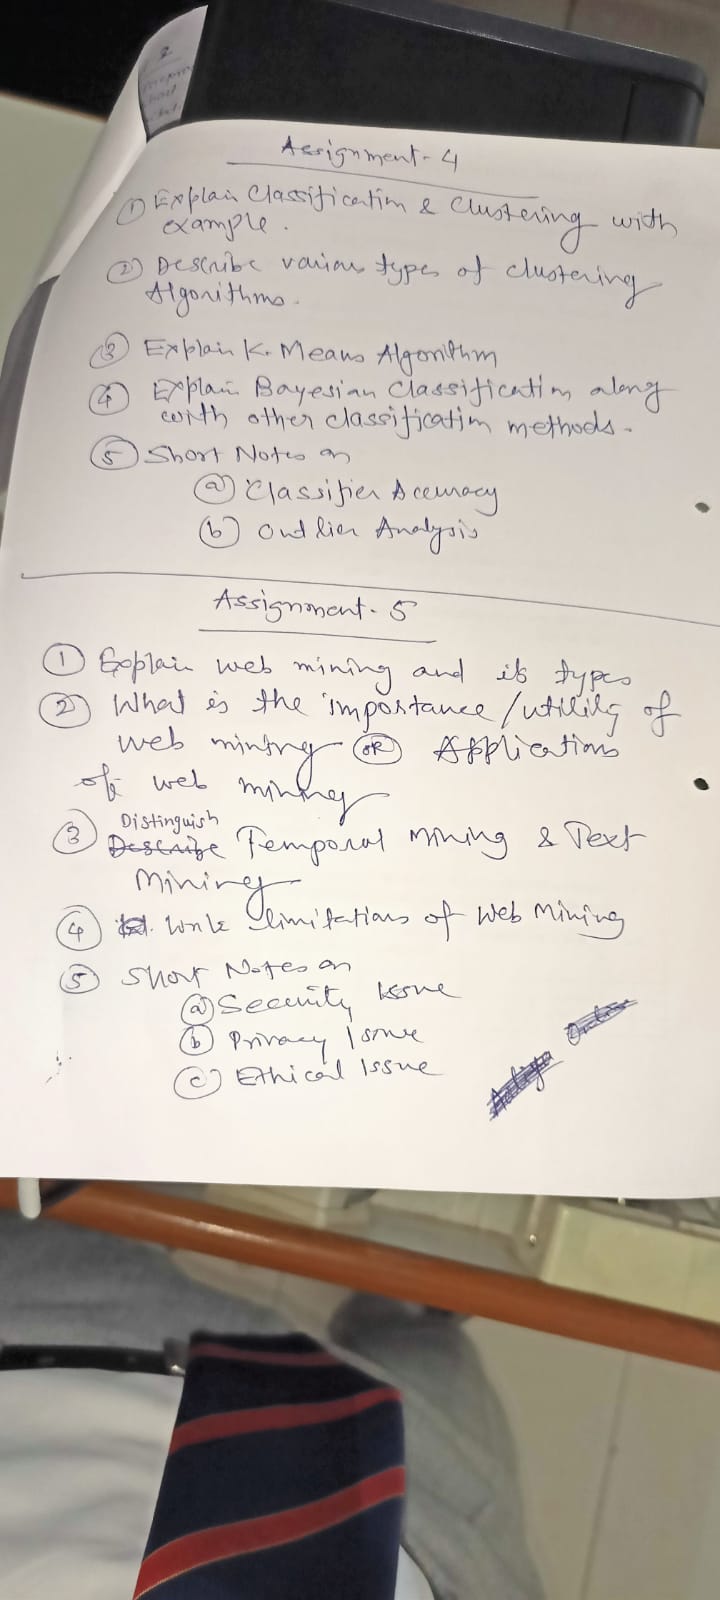 Assignment - 4
① Explain Classification & Clustering with
example.
② Describe various types of clustering
Algorithms.
③ Explain K. Means Algorithm
④ Explain Bayesian Classification along
with other classification methods.
⑤ Short Notes on
ⓐ Classifier Accuracy
ⓑ Outlier Analysis
Assignment - 5
① Explain web mining and its types
② What is the importance / utility of
web mining OR Applications
of web mining
Distinguish
③ Describe Temporal Mining & Text
Mining
④ Write limitations of Web Mining
⑤ Short Notes on
ⓐ Security Issue
ⓑ Privacy Issue
ⓒ Ethical Issue